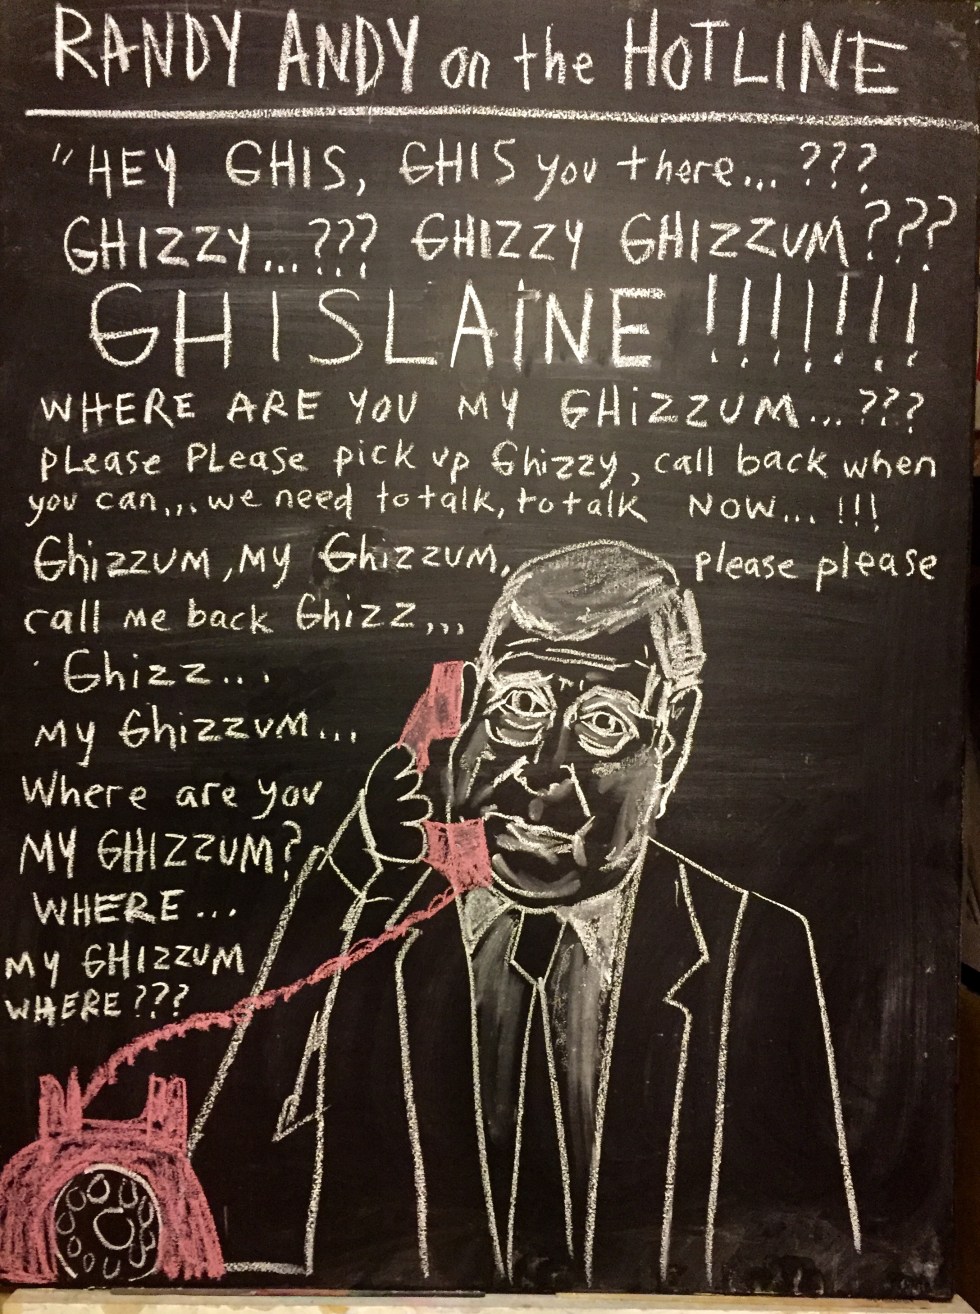 RANDY ANDY on the HOTLINE
"HEY GHIS, GHIS you there... ???
GHIZZY...??? GHIZZY GHIZZUM???
GHISLAINE !!!!!!!
WHERE ARE YOU MY GHIZZUM...???
PLease PLease pick up Ghizzy, call back when
you can,,, we need to talk, to talk NOW... !!!
GhizzUM, MY GhizzUM, please please
call Me back Ghizz,,,
Ghizz...
MY GhizzUM...
Where are you
MY GHIZZUM?
WHERE...
MY GHIZZUM
WHERE???